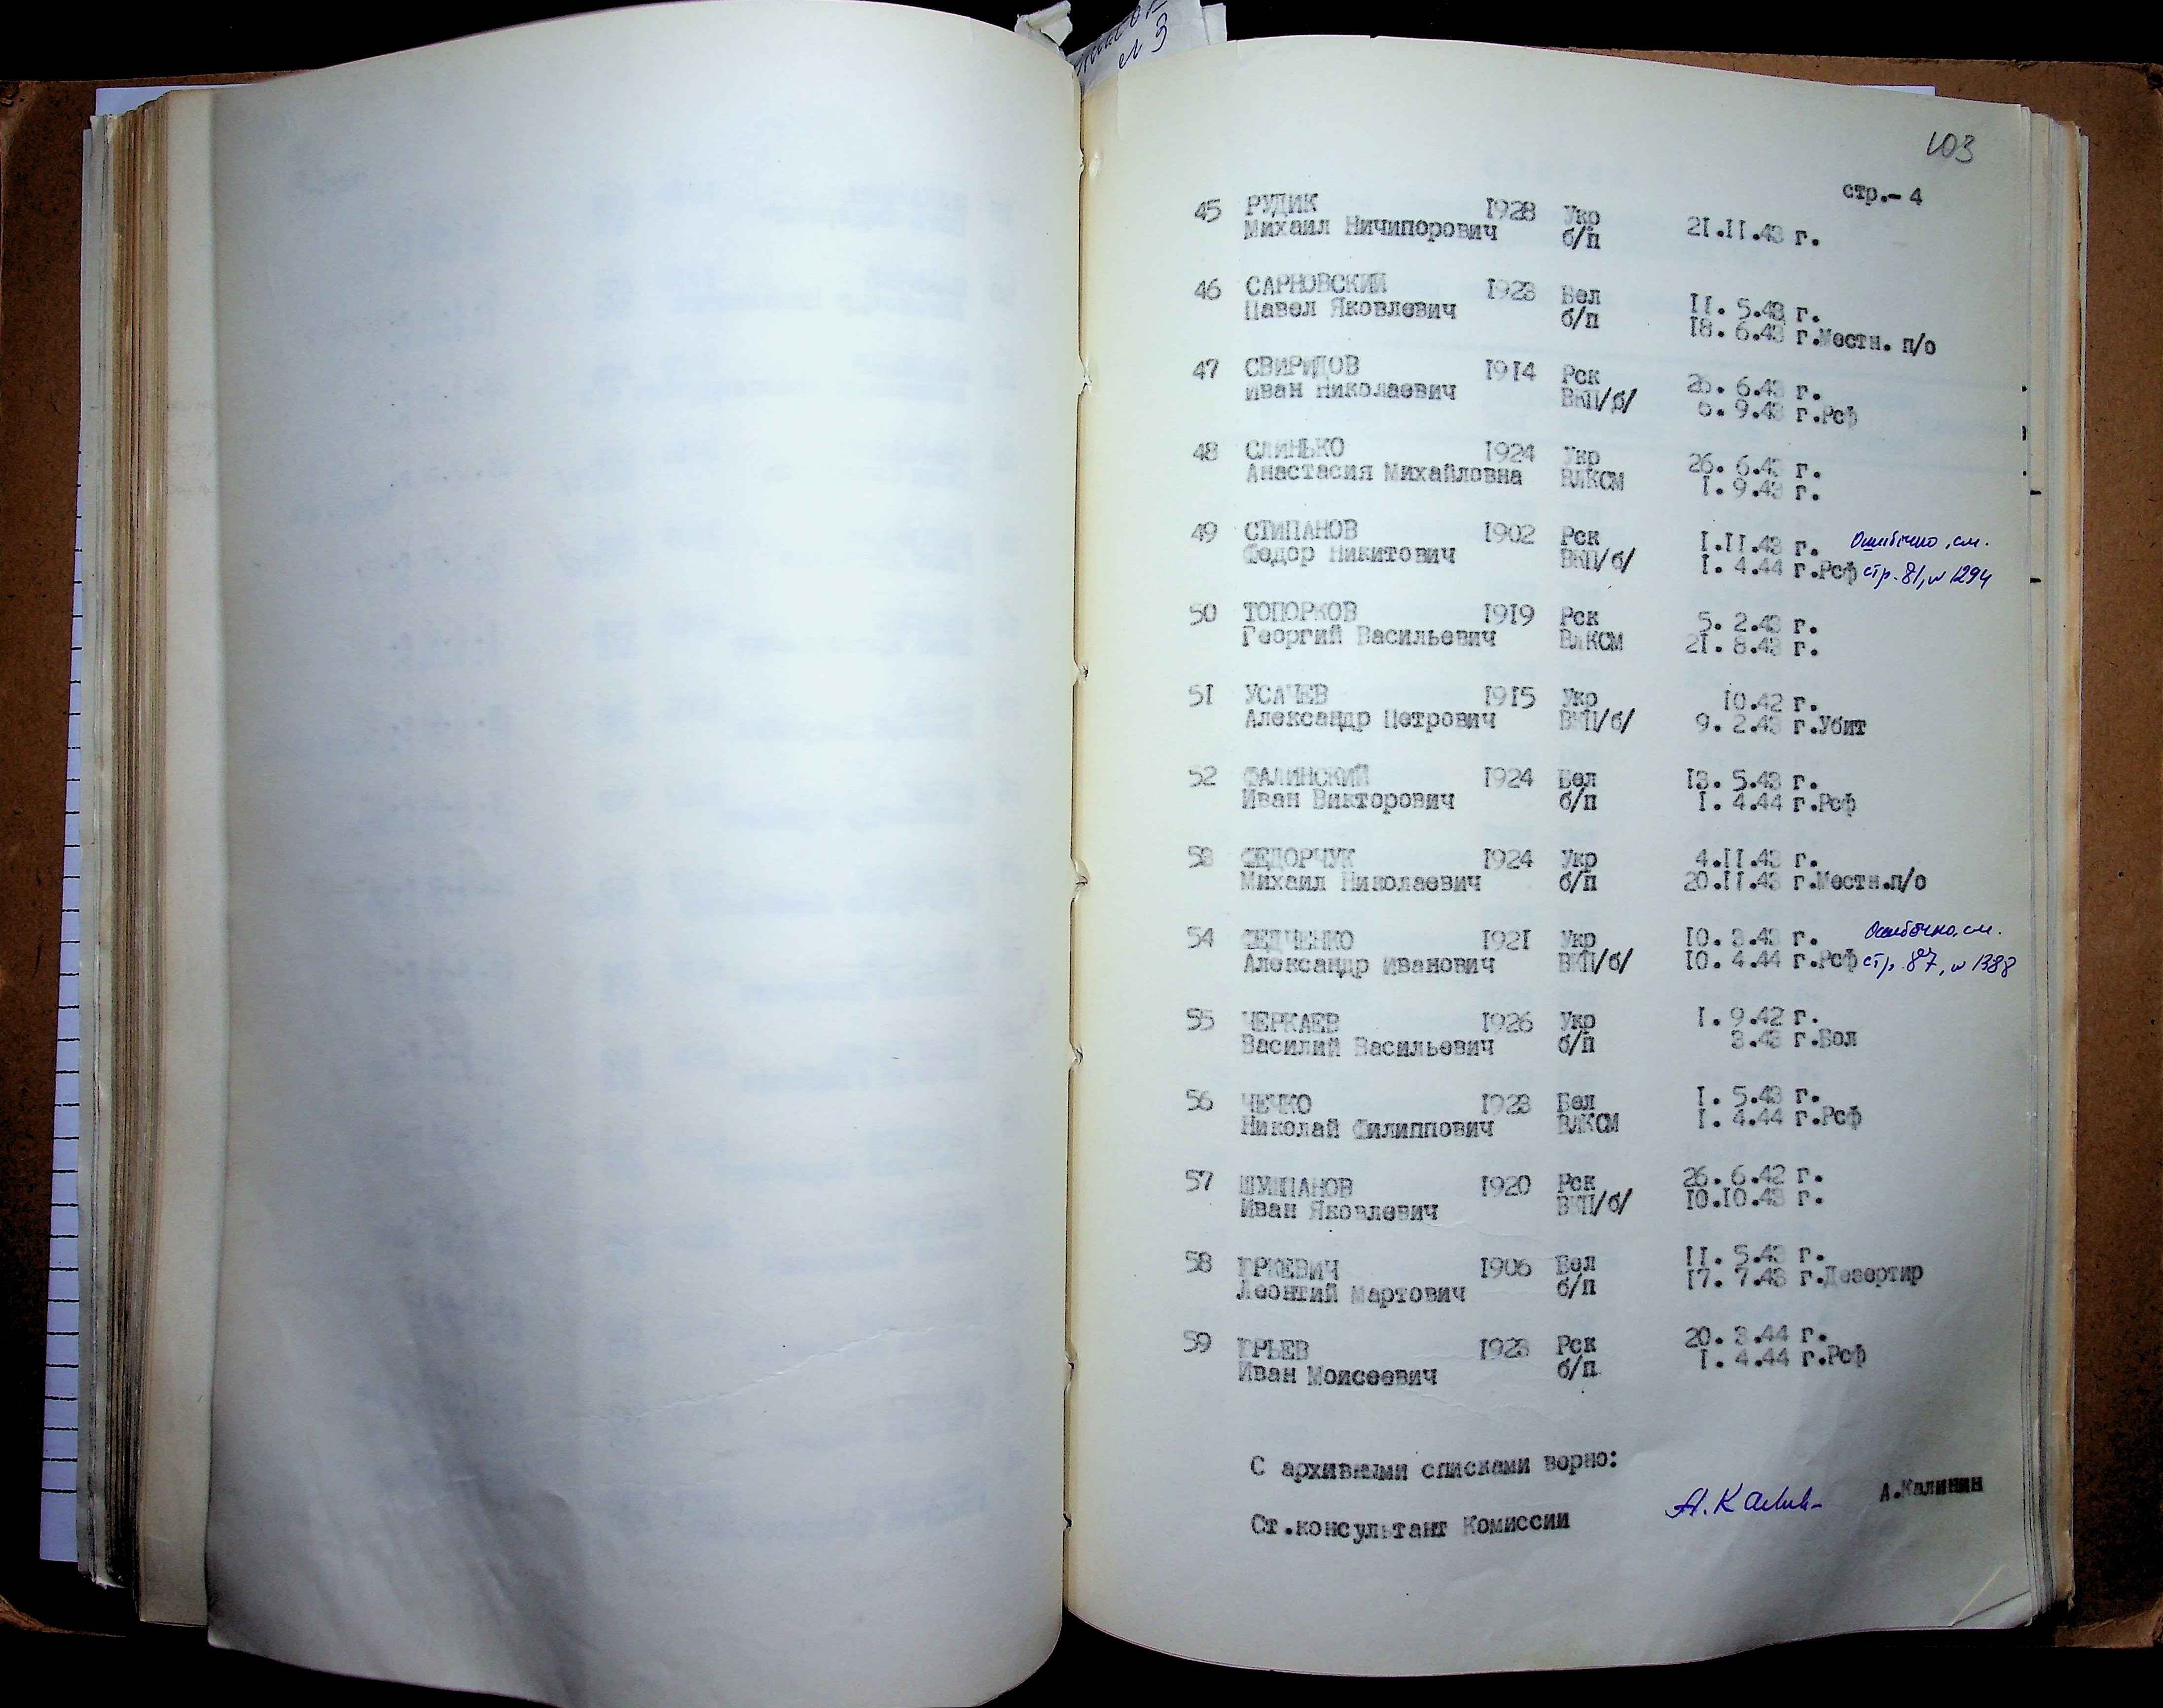 л 3
103
стр.- 4
45 РУДИК 1928 Укр 21.II.43 г.
Михаил Ничипорович б/п
46 САРНОВСКИЙ 1923 Бел II. 5.43 г.
Павел Яковлевич б/п 18. 6.43 г.Местн. п/о
47 СВИРИДОВ 1914 Рск 26. 6.43 г.
Иван Николаевич ВКП/б/ 6. 9.43 г.Рсф
48 СЛИНЬКО 1924 Укр 26. 6.43 г.
Анастасия Михайловна ВЛКСМ I. 9.43 г.
49 СТИПАНОВ 1902 Рск I.II.43 г. Ошибочно, см.
Федор Никитович ВКП/б/ I. 4.44 г.Рсф стр. 81, н 1294
50 ТОПОРКОВ 1919 Рск 5. 2.43 г.
Георгий Васильевич ВЛКСМ 21. 8.43 г.
51 УСАЧЕВ 1915 Укр 10.42 г.
Александр Петрович ВКП/б/ 9. 2.43 г.Убит
52 ФАЛИНСКИЙ 1924 Бел 13. 5.43 г.
Иван Викторович б/п I. 4.44 г.Рсф
53 ФЕДОРЧУК 1924 Укр 4.II.43 г.
Михаил Николаевич б/п 20.II.43 г.Местн.п/о
54 ФЕДЧЕНКО 1921 Укр 10. 3.43 г. Ошибочно, см.
Александр Иванович ВКП/б/ 10. 4.44 г.Рсф стр. 87, н 1388
55 ЧЕРКАЕВ 1926 Укр I. 9.42 г.
Василий Васильевич б/п 3.43 г.Бол
56 ЧЕЧКО 1923 Бел I. 5.43 г.
Николай Филиппович ВЛКСМ I. 4.44 г.Рсф
57 ШУМПАНОВ 1920 Рск 26. 6.42 г.
Иван Яковлевич ВКП/б/ 10.10.43 г.
58 ЮРКЕВИЧ 1906 Бел II. 5.43 г.
Леонтий Мартович б/п 17. 7.43 г.Дезертир
59 ЮРЬЕВ 1923 Рск 20. 3.44 г.
Иван Моисеевич б/п I. 4.44 г.Рсф
С архивными списками верно:
Ст.консультант Комиссии А.Калин А.Калинин